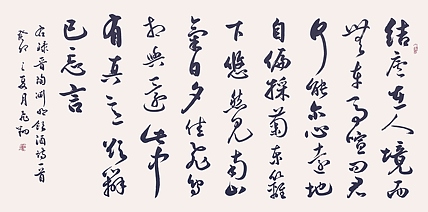 結廬在人境而
無車馬喧問君
何能尔心遠地
自偏採菊東籬
下悠然見南山
氣日夕佳飛鳥
相與還此中
有真意欲辯
已忘言
右錄晉陶渊明飲酒詩一首
癸卯之夏月